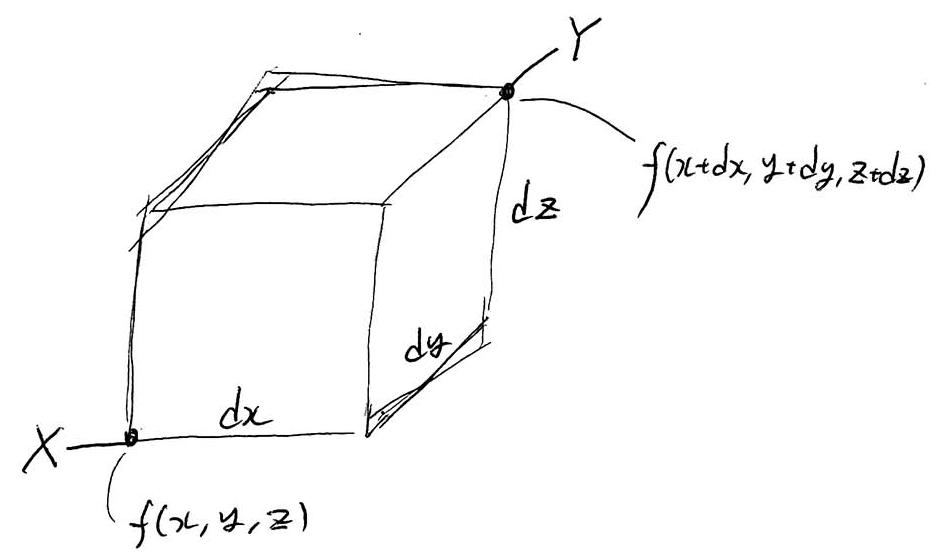 Y
f(x+dx, y+dy, z+dz)
dz
dy
dx
X
f(x, y, z)